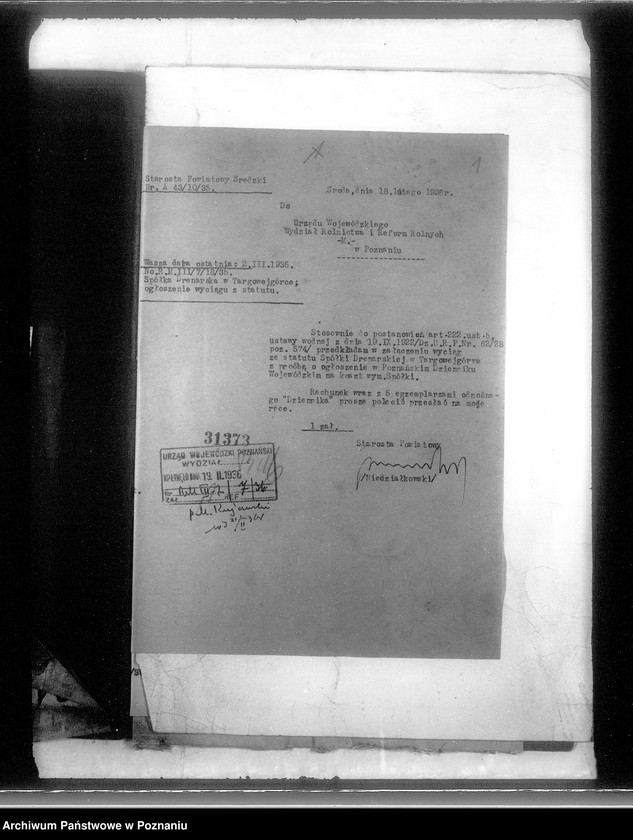 1
Starosta Powiatowy Średzki
Nr. A 43/10/35.
Środa, dnia 18.lutego 1936r.
Do
Urzędu Wojewódzkiego
Wydział Rolnictwa i Reform Rolnych
-M.-
w Poznaniu
Wasza data ostatnia: 2.III.1935.
No.R.M.III/7/18/35.
Spółka Drenarska w Targowejgórce;
ogłoszenie wyciągu z statutu.
Stosownie do postanowień art.222.ust.5.
ustawy wodnej z dnia 19.IX.1922/Dz.U.R.P.Nr. 62/28
poz. 574/ przedkładam w załączeniu wyciąg
ze statutu Spółki Drenarskiej w Targowejgórce
z prośbą o ogłoszenie w Poznańskim Dzienniku
Wojewódzkim na koszt wym.Spółki.
Rachunek wraz z 5 egzemplarzami odnośne-
go "Dziennika" proszę polecić przesłać na moje
ręce.
1 zał.
Starosta Powiatowy
/Niedziałkowski/
31373
URZĄD WOJEWÓDZKI POZNAŃSKI
WYDZIAŁ
19. II. 1936
7/36
Archiwum Państwowe w Poznaniu